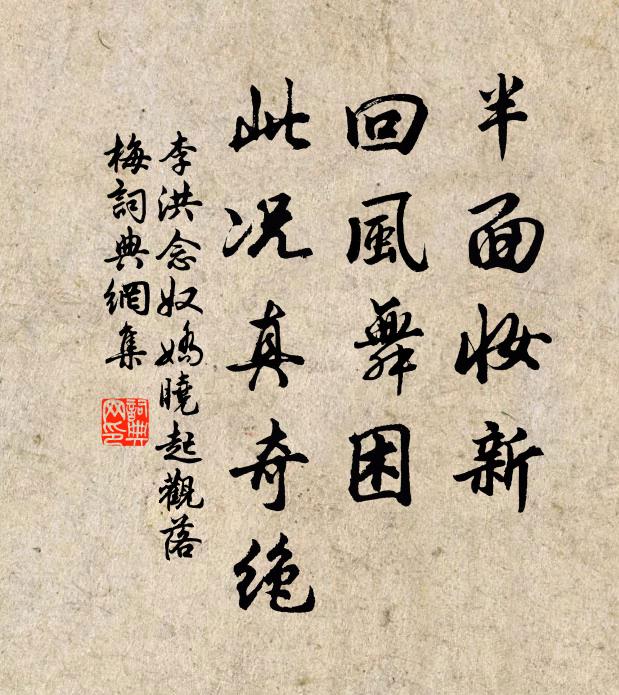 半面妝新
回風舞困
此况真奇絶
李洪念奴嬌曉起觀落
梅詞典網集
詞典
网印